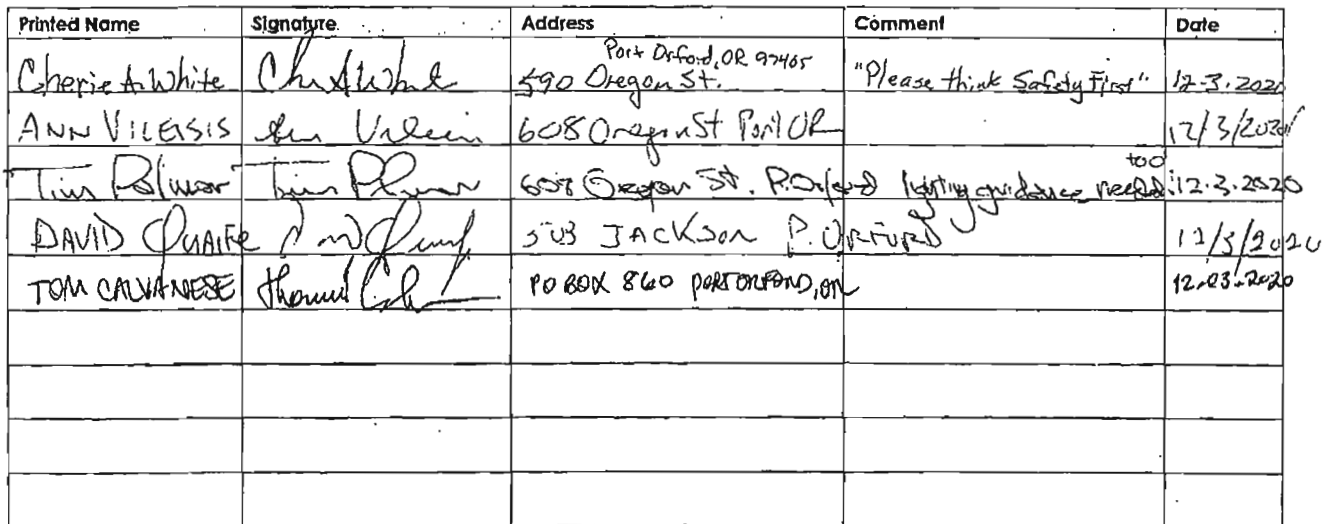 Printed Name Signature Address Comment Date
Port Orford, OR 97465
Cherie A. White 590 Oregon St. "Please think Safety First" 12-3.2020
ANN VILEISIS Ann Vileisis 608 Oregon St Port OR 12/3/2020
too
Tim Palmer Tim Palmer 608 Oregon St. P. Orford lighting guidance needed 12.3.2020
DAVID QUAIFE 503 JACKSON P. ORFORD 12/3/2020
TOM CALVANESE PO BOX 860 PORT ORFORD, OR 12.03.2020